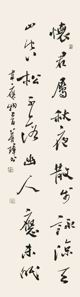 懷君屬秋夜散步詠涼天
山空松子落幽人應未眠